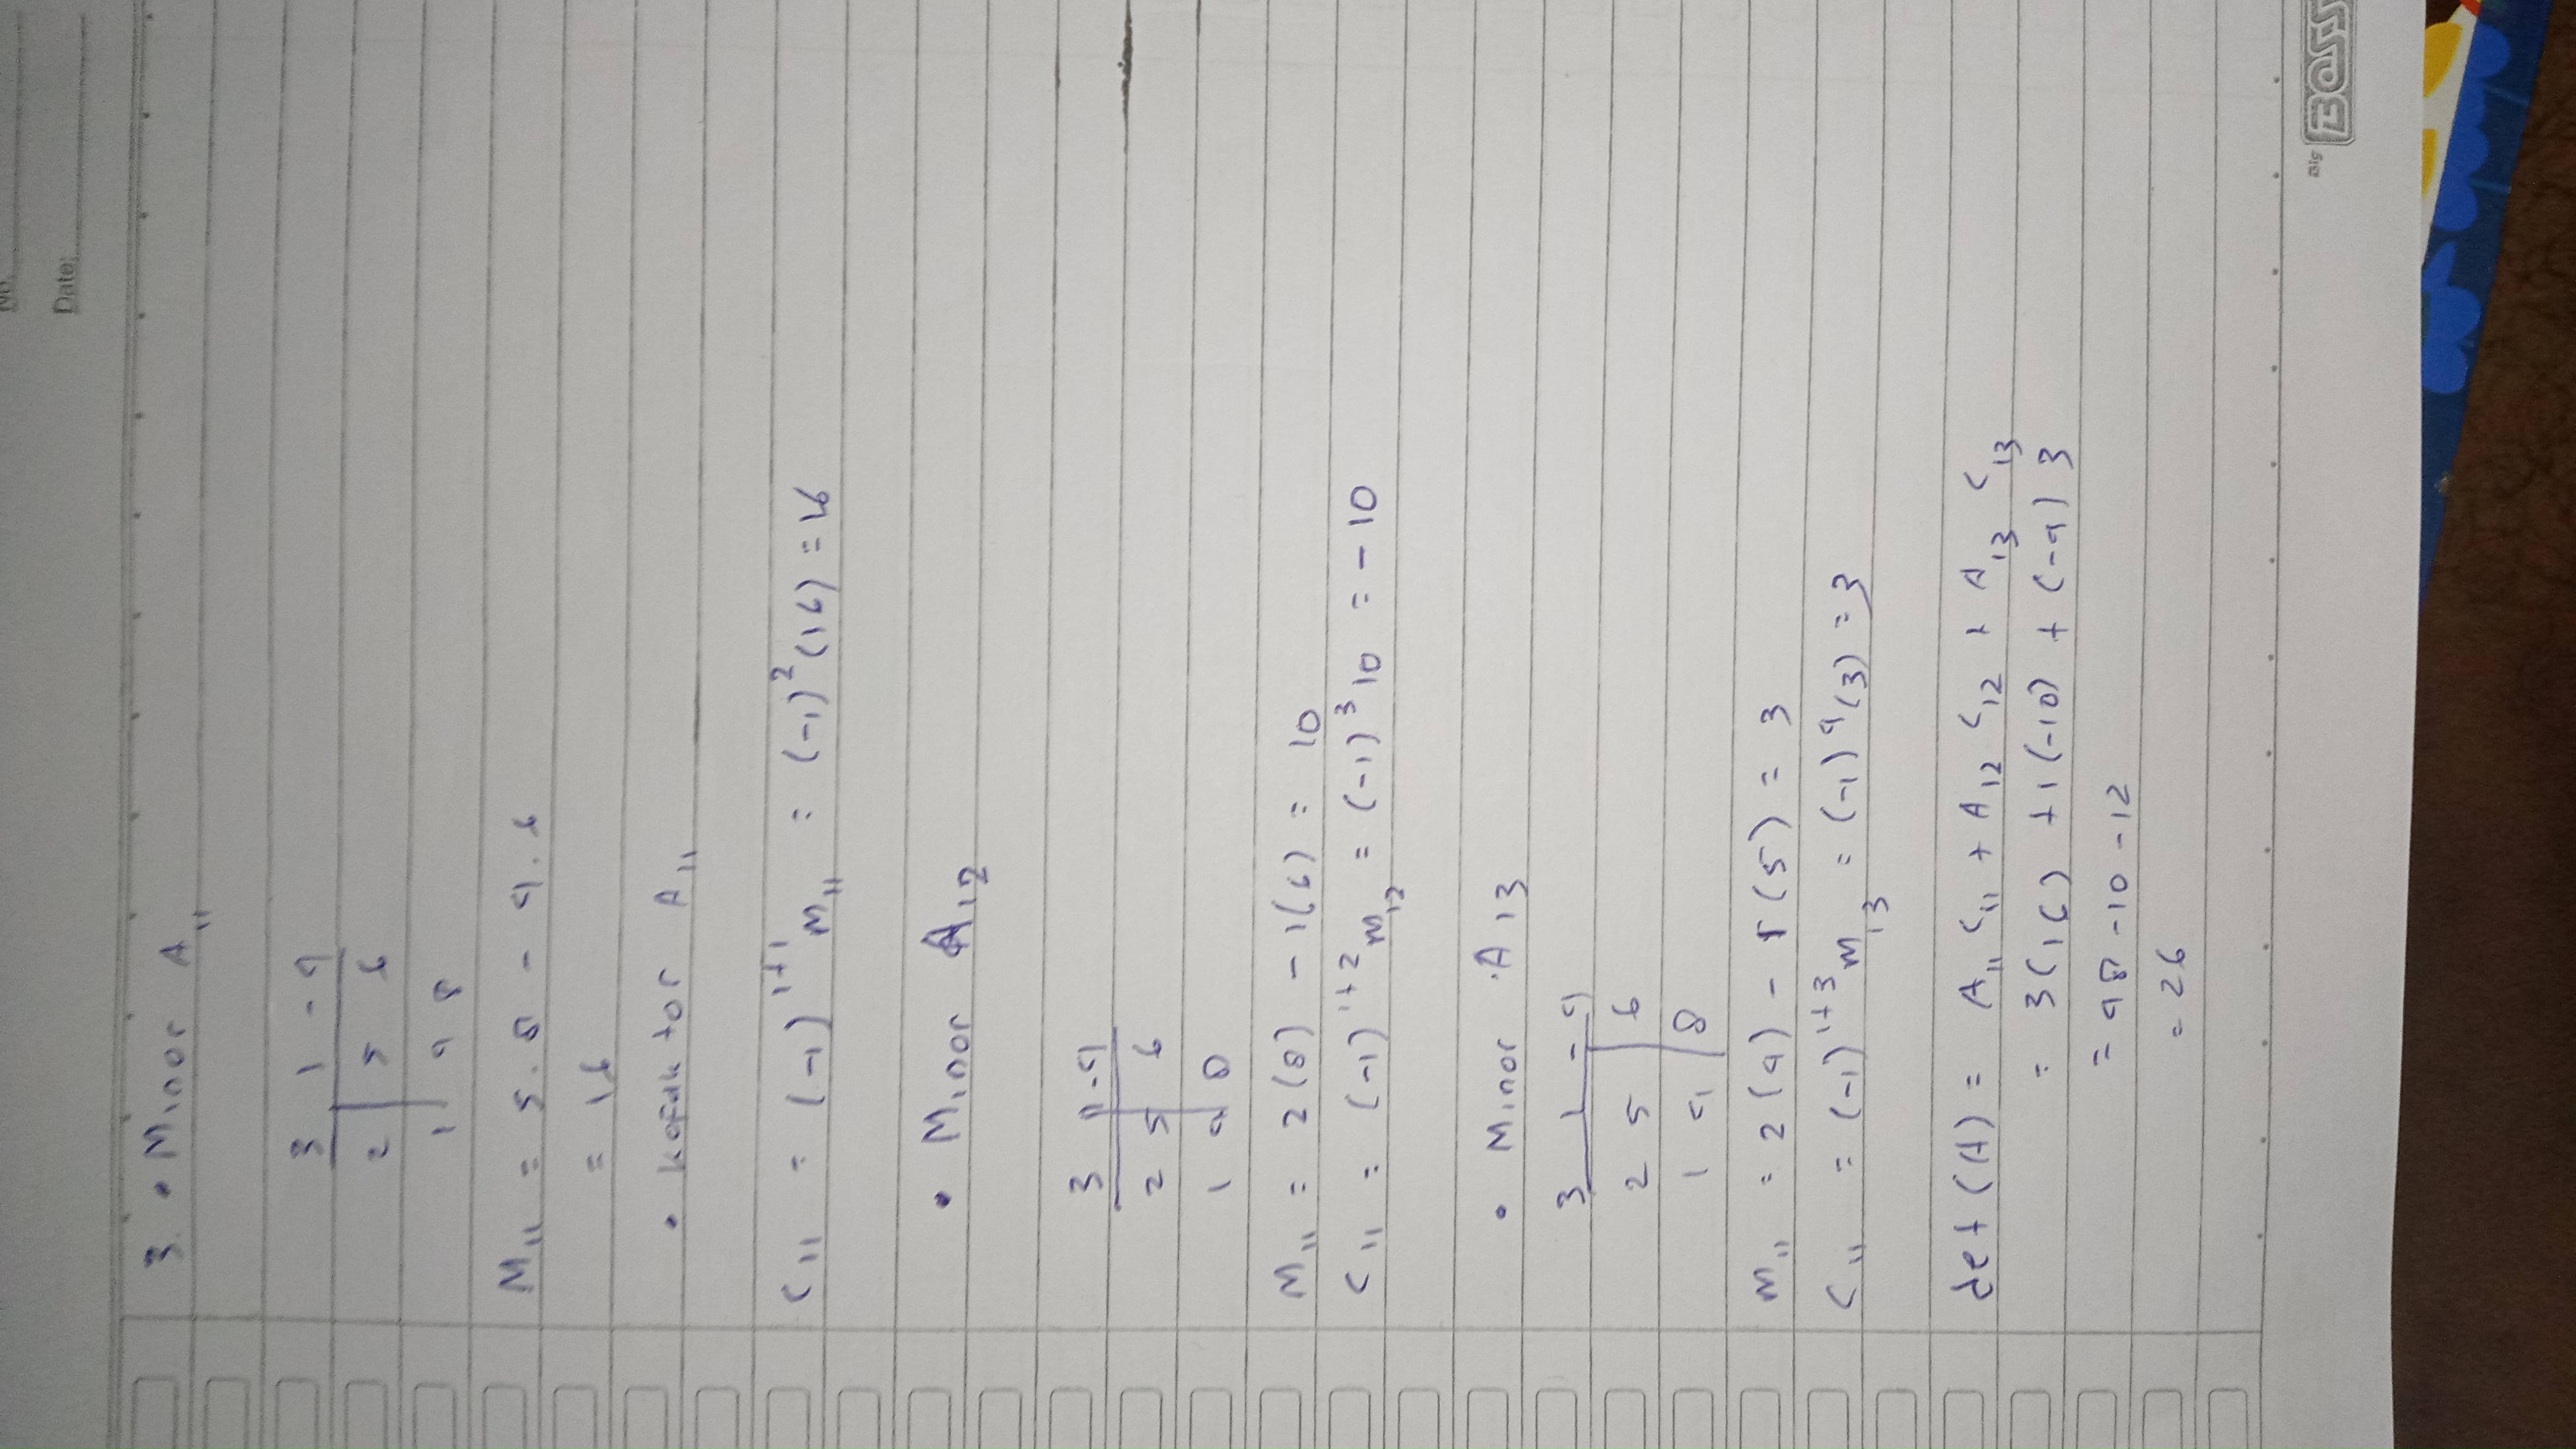 No.
Date:
3. • Minor A11
3 1 -4
2 5 6
1 4 8
M11 = 5.8 - 4.6
= 16
• kofaktor A11
C11 = (-1)^1+1 M11 = (-1)^2 (16) = 16
• Minor A12
3 1 -4
2 5 6
1 4 8
M11 = 2(8) - 1(6) = 10
C11 = (-1)^1+2 M12 = (-1)^3 10 = -10
• Minor A13
3 1 -4
2 5 6
1 4 8
M11 = 2(4) - 1(5) = 3
C11 = (-1)^1+3 M13 = (-1)^4 (3) = 3
det(A) = A11 C11 + A12 C12 + A13 C13
= 3(16) + 1(-10) + (-4) 3
= 48 - 10 - 12
= 26
Big BOSS